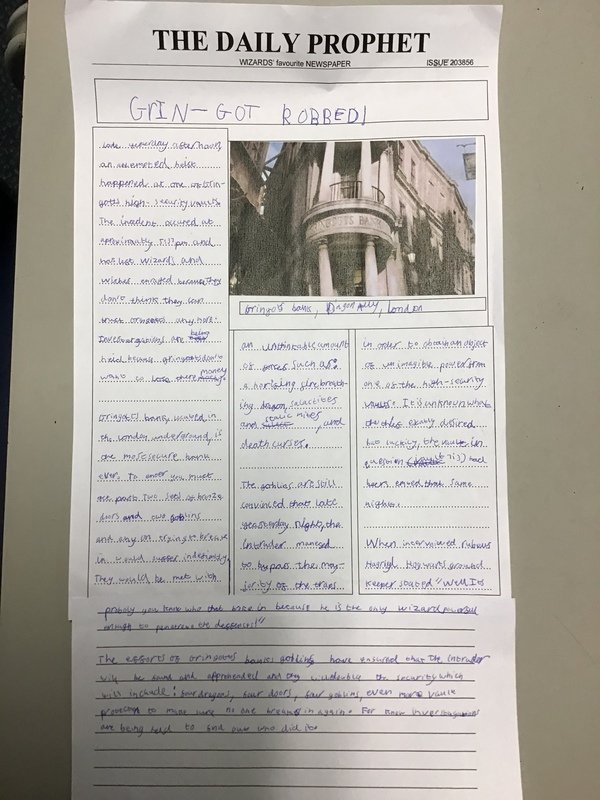 THE DAILY PROPHET
WIZARDS' favourite NEWSPAPER
ISSUE 203856
GRIN-GOT ROBBED!
late yesterday afternoon,
an attempted heist
happened at one of Grin-
gotts high-security vaults.
The incident occured at
aproximatly 7:57 pm and
has left wizards and
witches enraged because they
don't think they can
trust Gringotts any more.
Investergations are being
held because gringotts don't
want to lose there money
Gringotts bank, located in
the London underground, is
the most secure bank
ever. To enter you must
get past two sets of bronze
doors and two goblins
and any on trying to break
in would suffer indefinitly.
They would be met with
GRINGOTTS BANK
Gringots bank, Diagon Ally, London
an unthinkable amount
of forces such as:
a horifying fire breath-
ing dragon, salactites
and static mites, and
death curses.
The goblins are still
convinced that late
yeasterday night, the
intruder managed
to bypass the maj-
jority of the traps
in order to obtain an object
of unimagible power from
one of the high-security
vaults. It is unknown what
the thief exatly desired
but luckily, the vault in
question (713) had
been emptied that same
night.
When interviewed rubeus
Hagrid Hogwarts ground
keeper stated "Well Its
probaly you know who that broke in because he is the only wizard powerful
enough to penetrate the deffences!"
The efforts of Gringotts bankes goblins have ensured that the intruder
will be found and apprehended and they will double the security which
will include: four dragons, four doors, four goblins, even more vault
protection to make sure no one breaks in again. For know inverstagations
are being held to find out who did it.